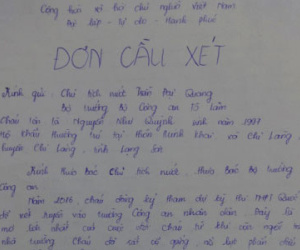 Cộng hoà xã hội chủ nghĩa Việt Nam
Độc lập - tự do - Hạnh phúc
ĐƠN CẦU XÉT
Kính gửi: Chủ tịch nước Trần Đại Quang
Bộ trưởng Bộ Công an Tô Lâm
Cháu tên là Nguyễn Như Quỳnh sinh năm 1997
Hộ khẩu thường trú tại: thôn Lạnh xã Chi Lăng
huyện Chi Lăng, tỉnh Lạng Sơn
Kính thưa Bác Chủ tịch nước, thưa Bác Bộ trưởng
Công an.
Năm 2016 cháu đăng ký tham dự kỳ thi THPT Quốc
để xét tuyển vào trường Công an nhân dân. Đây là
mơ lớn nhất của cuộc đời cháu từ khi còn ngồi
nhà trường. Cháu đã rất cố gắng, nỗ lực phấn